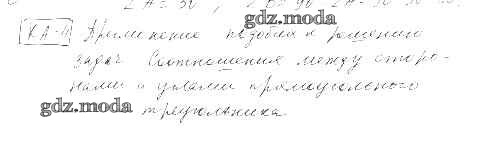 ∠A = 30°, ∠B = 90°
gdz.moda
КА-4 Применение подобия к решению
задач. Соотношения между сторо-
нами и углами прямоугольного
gdz.moda
треугольника.